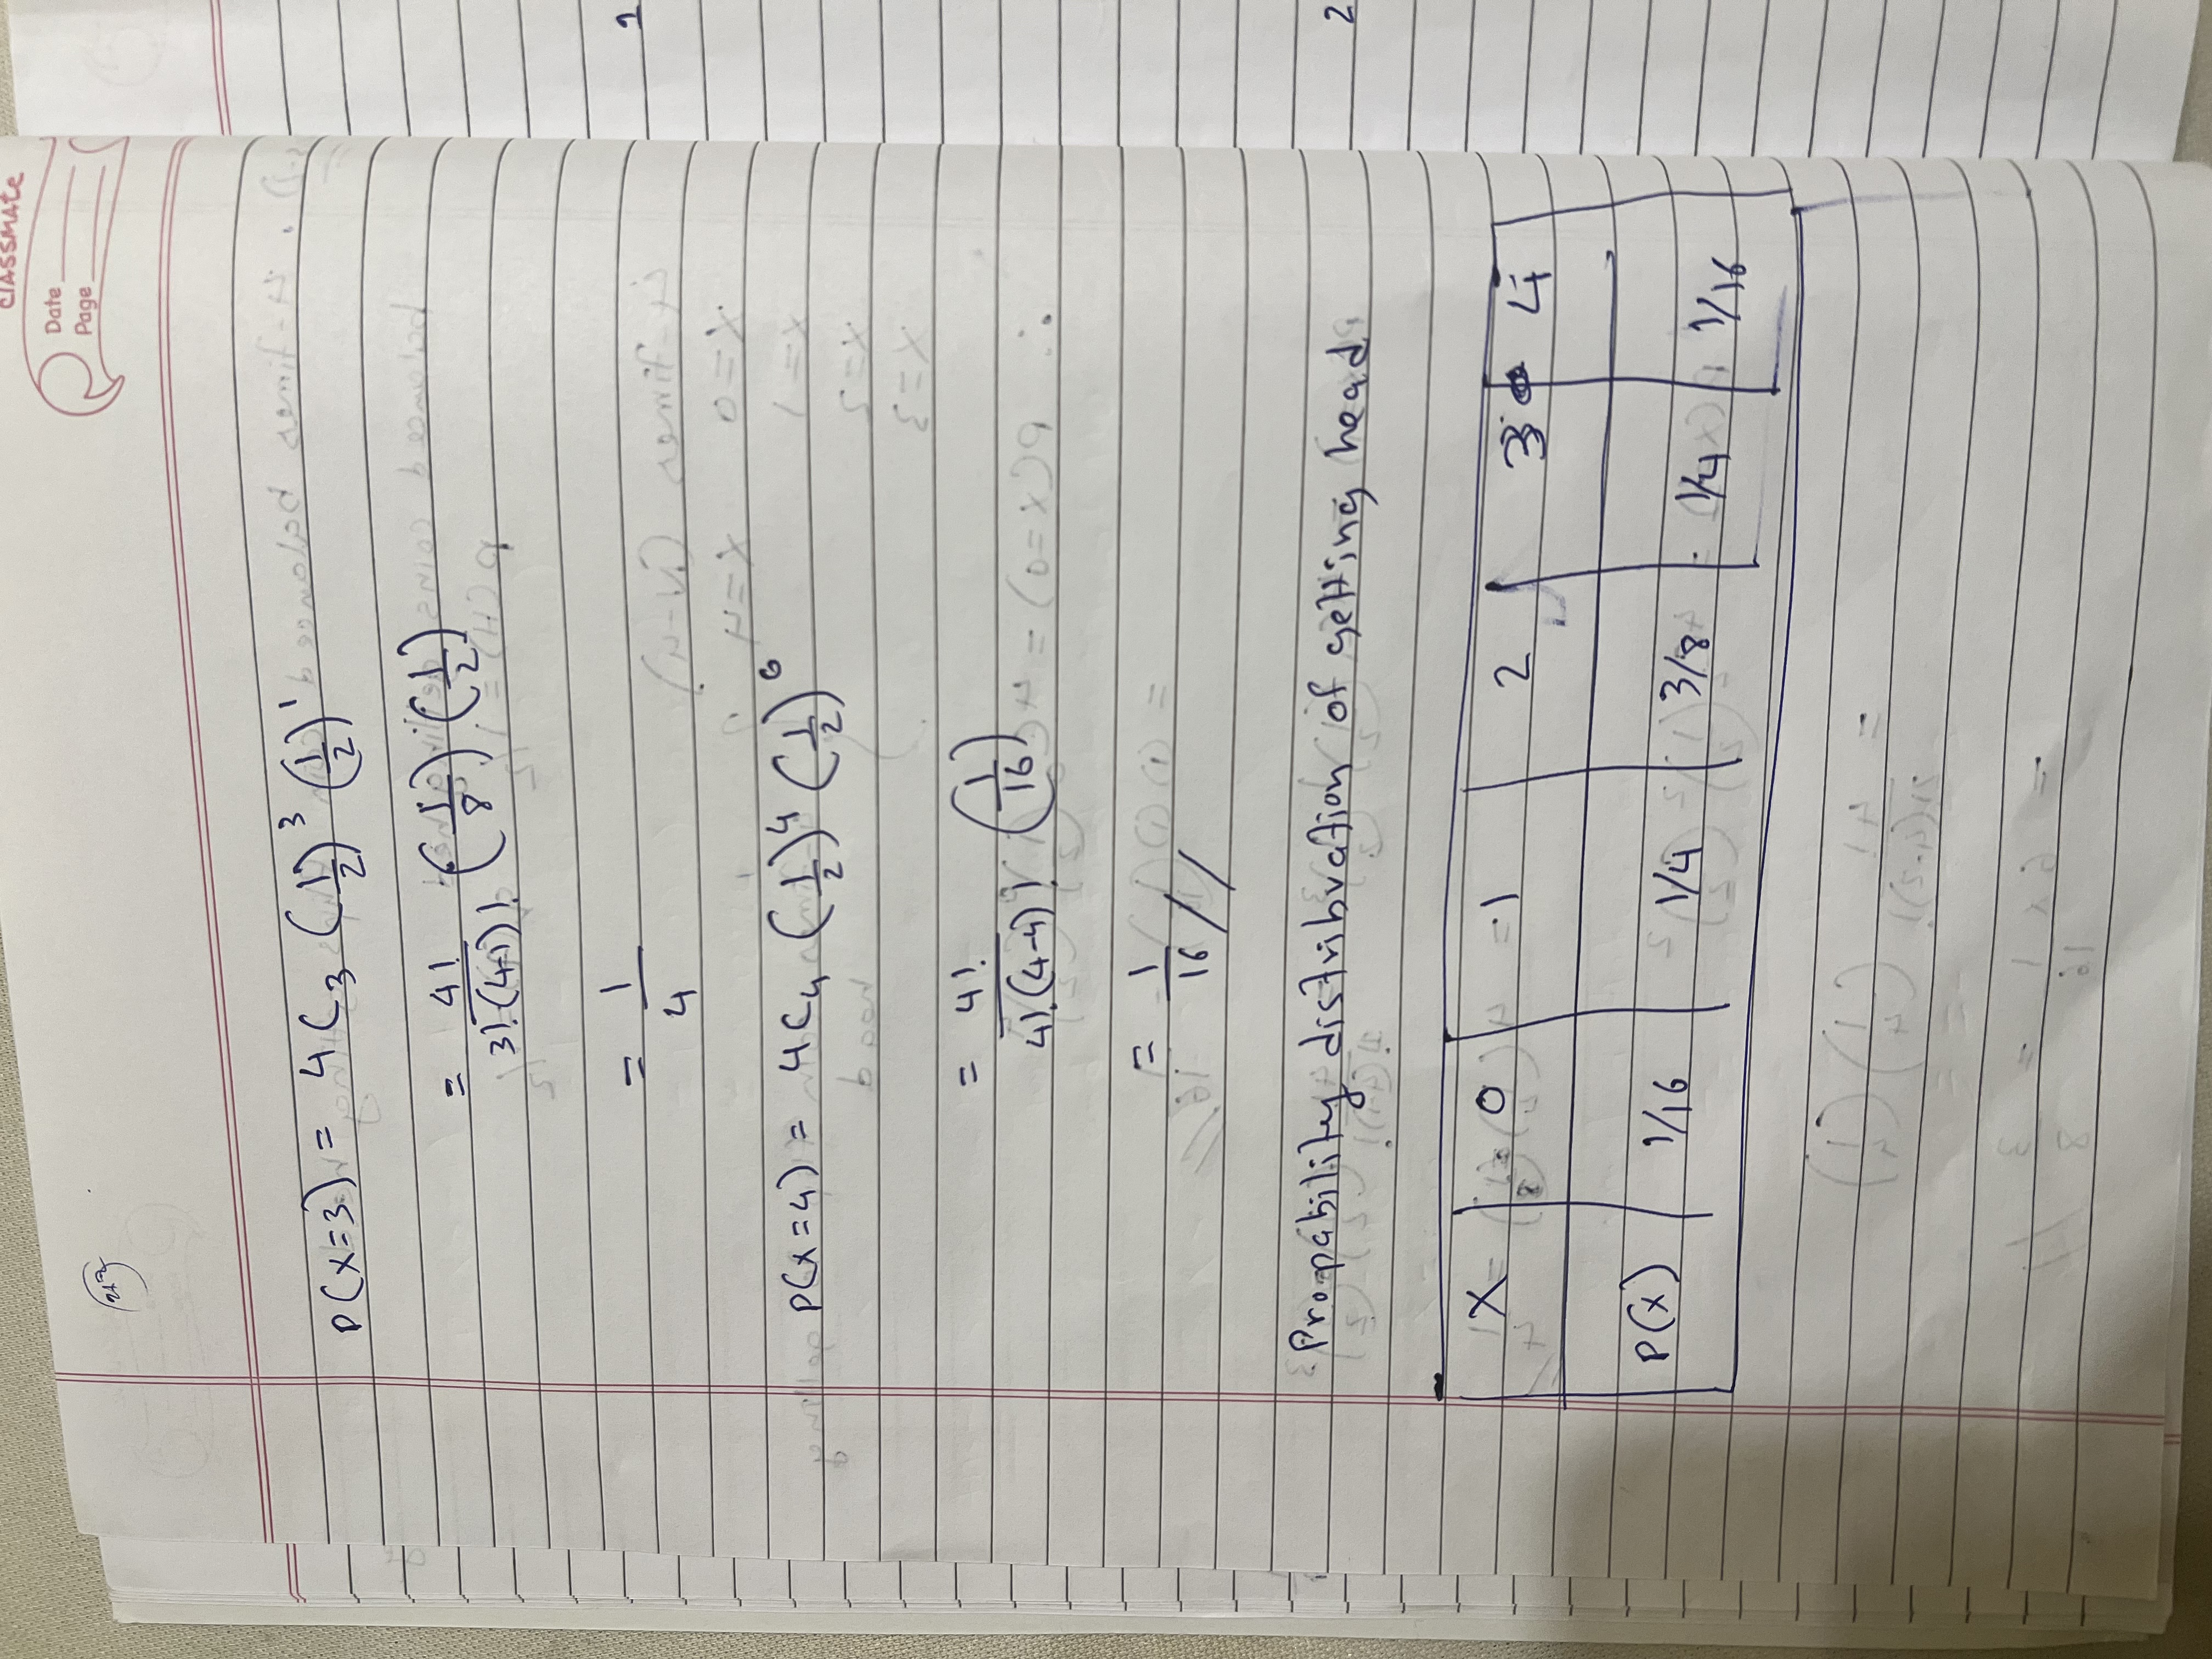 classmate
Date
Page
P(X=3) = 4C₃ (1/2)³ (1/2)¹
= 4!/3!.(4-1)! (1/8) (1/2)
= 1/4
P(X=4) = 4C₄ (1/2)⁴ (1/2)⁰
= 4!/4!.(4-4)! (1/16)
= 1/16 //
Propability distribvation of getting head
X 0 1 2 3 4
P(X) 1/16 1/4 3/8 1/4 1/16
1
2